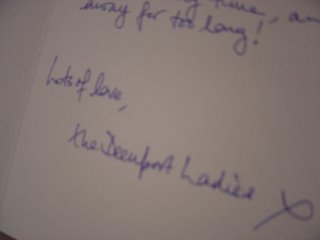 time, a
away for too long!
Lots of love,
the Deenport Ladies X